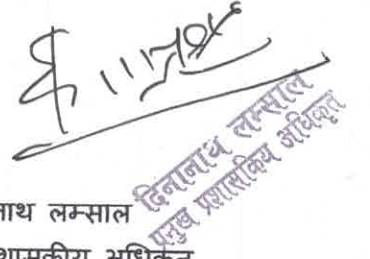 दिनानाथ लम्साल
प्रमुख प्रशासकिय अधिकृत
नाथ लम्साल
शासकीय अधिकृत